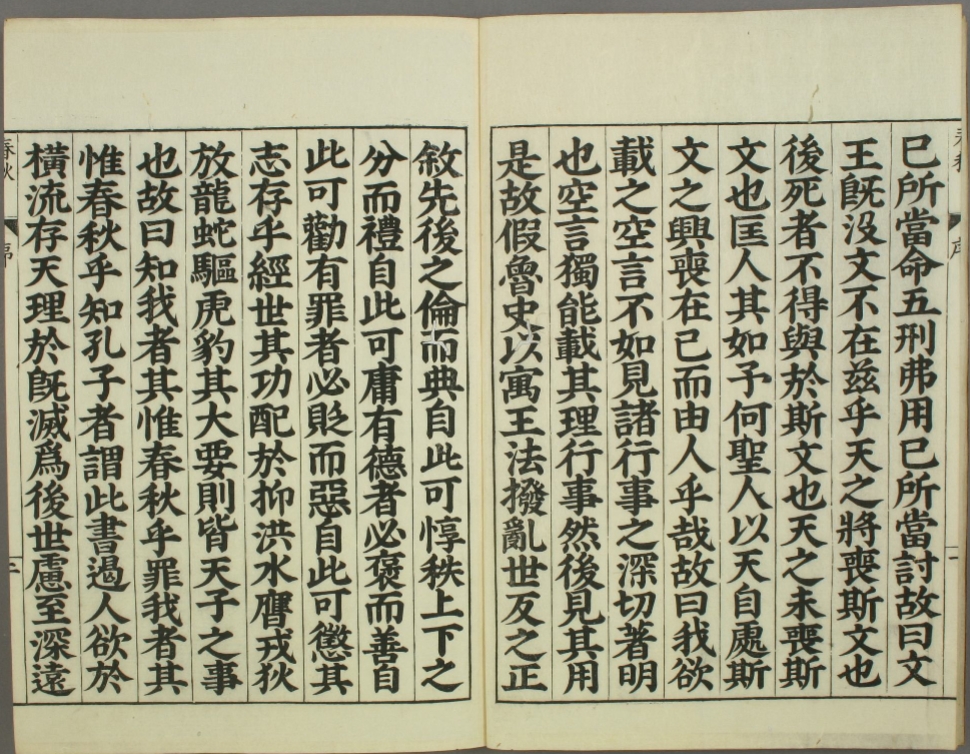 已所當命五刑弗用已所當討故曰文
王旣没文不在茲乎天之將喪斯文也
後死者不得與於斯文也天之未喪斯
文也匡人其如予何聖人以天自處斯
文之興喪在已而由人乎哉故曰我欲
載之空言不如見諸行事之深切著明
也空言獨能載其理行事然後見其用
是故假魯史以寓王法撥亂世反之正
敘先後之倫而典自此可惇秩上下之
分而禮自此可庸有德者必褒而善自
此可勸有罪者必貶而惡自此可懲其
志存乎經世其功配於抑洪水膺戎狄
放龍蛇驅虎豹其大要則皆天子之事
也故曰知我者其惟春秋乎罪我者其
惟春秋乎知孔子者謂此書遏人欲於
橫流存天理於旣滅爲後世慮至深遠
春秋
序
二